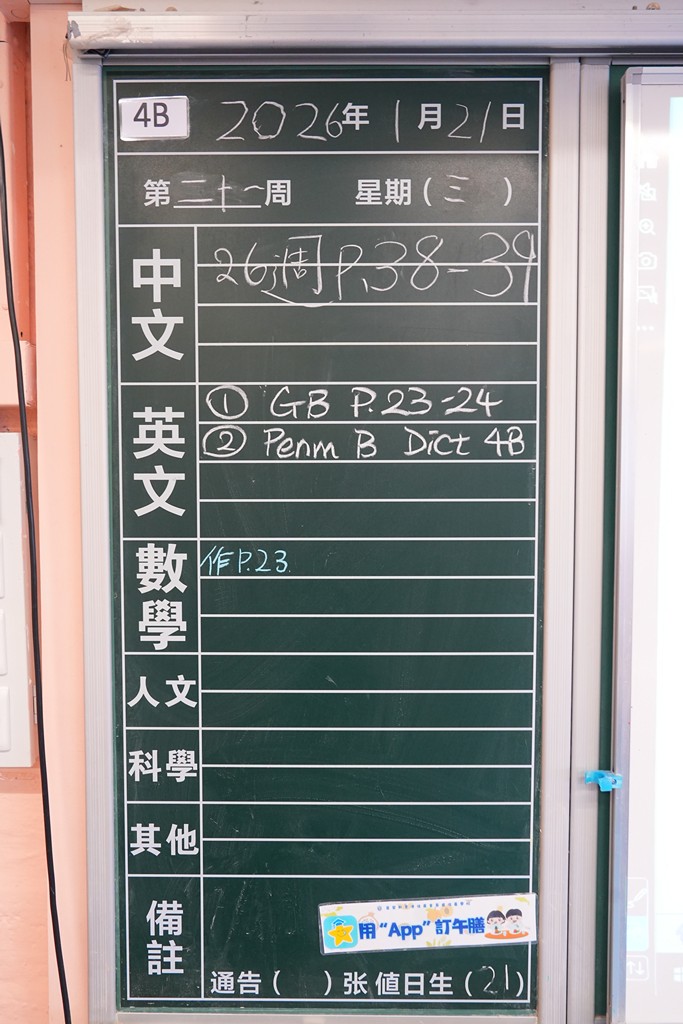 4B 2026年 1月21日
第二十一周 星期(三)
中文 26週 P.38-39
英文 ① GB P.23-24
② Penm B Dict 4B
數學 作 P.23.
人文
科學
其他
備註
用 “App” 訂午膳
通告( )张 值日生(21)